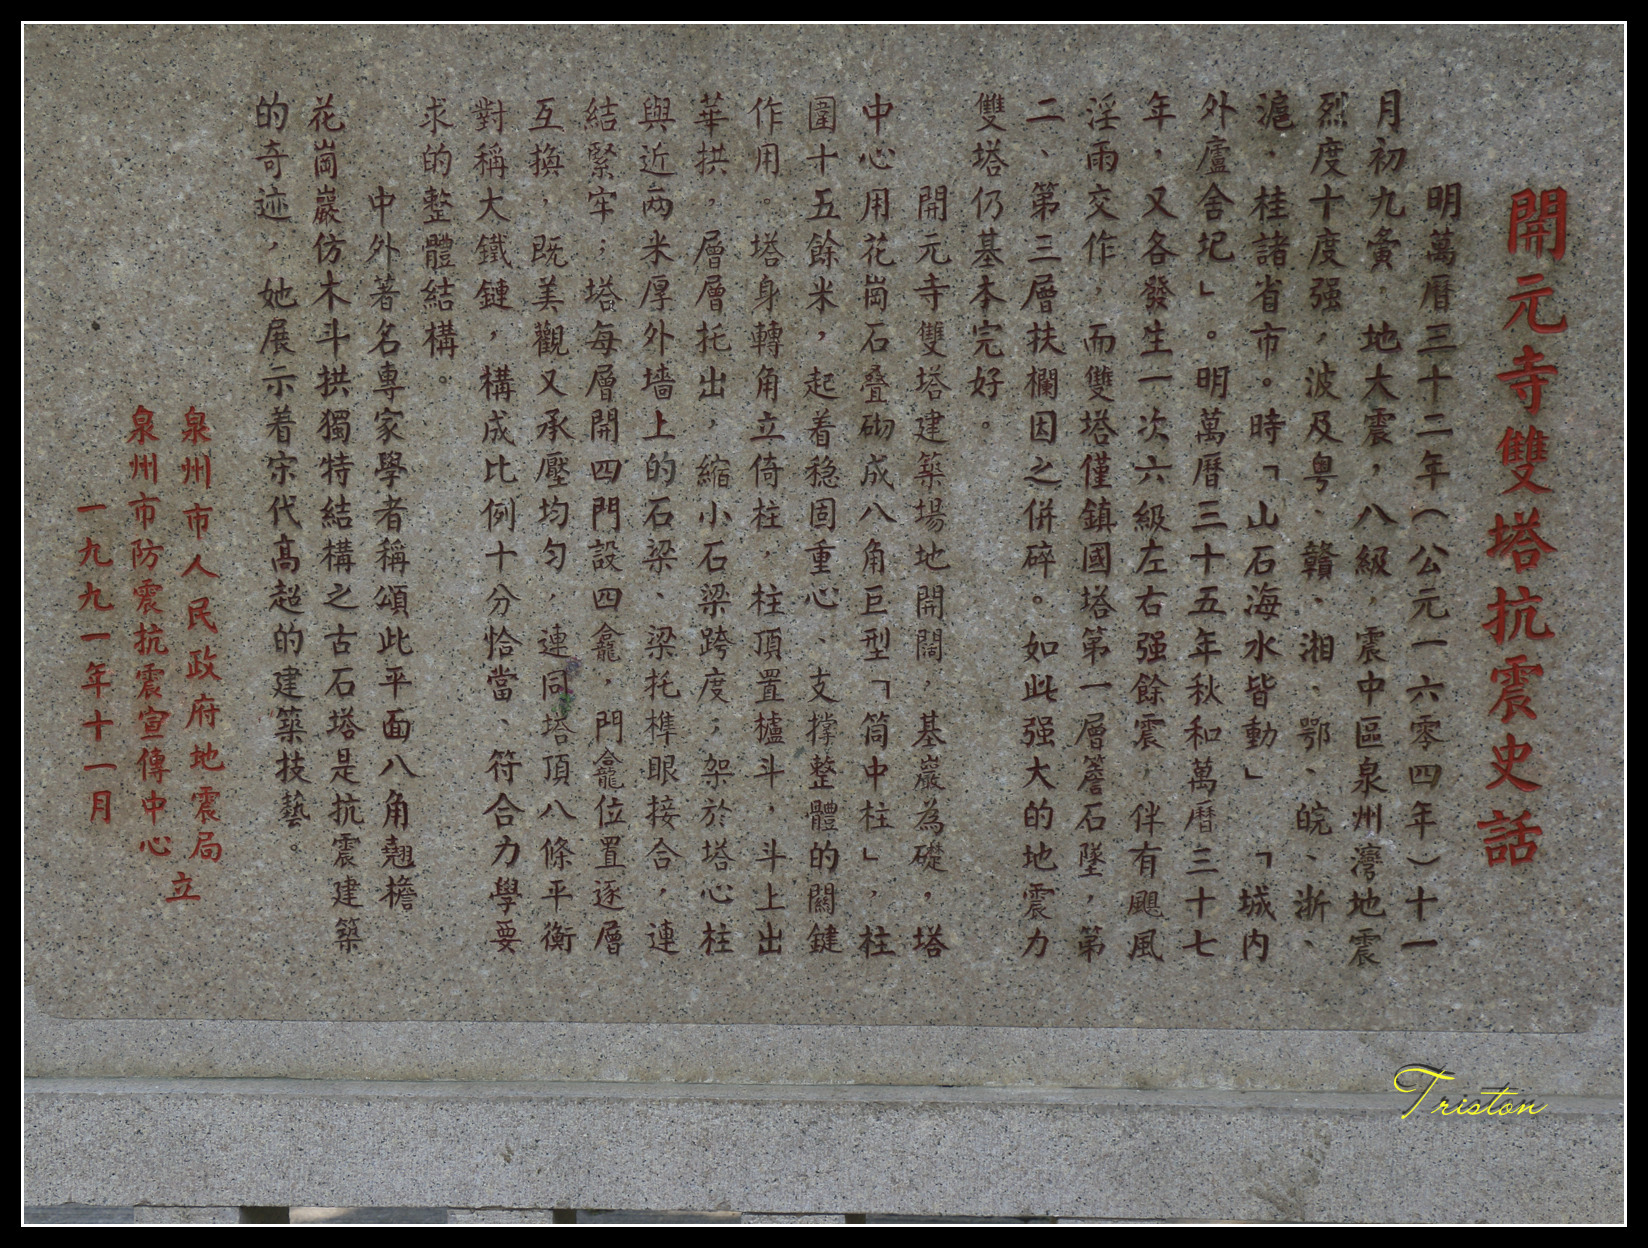 開元寺雙塔抗震史話
明萬曆三十二年（公元一六零四年）十一
月初九夤，地大震，八級，震中區泉州灣地震
烈度十度强，波及粤、贛、湘、鄂、皖、浙、
滬、桂諸省市。時「山石海水皆動」「城内
外廬舍圮」。明萬曆三十五年秋和萬曆三十七
年，又各發生一次六級左右强餘震，伴有颶風
淫雨交作，而雙塔僅鎮國塔第一層簷石墜，第
二、第三層扶欄因之併碎。如此强大的地震力
雙塔仍基本完好。
開元寺雙塔建築場地開闊，基巖為礎，塔
中心用花崗石叠砌成八角巨型「筒中柱」，柱
圍十五餘米，起着稳固重心、支撑整體的關鍵
作用。塔身轉角立倚柱，柱頂置櫨斗，斗上出
華拱，層層托出，縮小石梁跨度；架於塔心柱
與近兩米厚外墻上的石梁、梁托榫眼接合，連
結緊牢；塔每層開四門設四龕，門龕位置逐層
互换，既美觀又承壓均匀，連同塔頂八條平衡
對稱大鐵鏈，構成比例十分恰當、符合力學要
求的整體結構。
中外著名專家學者稱頌此平面八角翹檐
花崗巖仿木斗拱獨特結構之古石塔是抗震建築
的奇迹，她展示着宋代高超的建築技藝。
泉州市人民政府地震局
泉州市防震抗震宣傳中心
立
一九九一年十一月
Triston